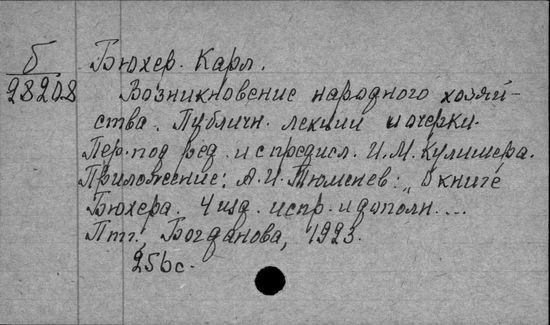 б
28208
Бюхер. Карл.
Возникновение народного хозяй-
ства. Публичн. лекции и очерки.
Пер. под ред. и с предисл. И. М. Кулишера.
Приложение: А. И. Тюменев: „О книге
Бюхера. 4 изд. испр. и дополн. ...
Птг., Богданова, 1923.
256 с.